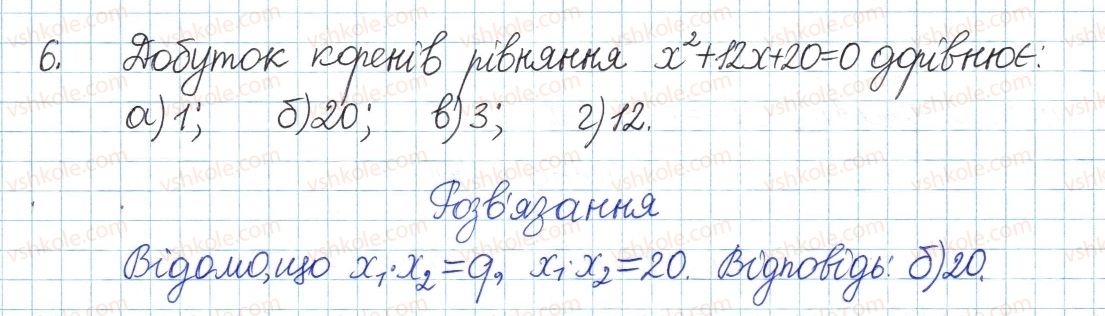 6. Добуток коренів рівняння x²+12x+20=0 дорівнює:
а) 1; б) 20; в) 3; г) 12.
Розв'язання
Відомо, що x₁·x₂=q, x₁·x₂=20. Відповідь: б) 20.